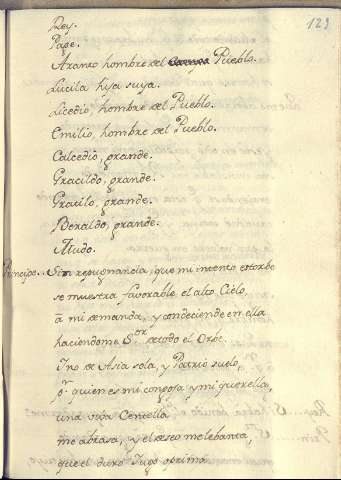 123
Rey.
Page.
Aranto hombre del Pueblo.
Lucila hija suya.
Licedio, hombre del Pueblo.
Emilio, hombre del Pueblo.
Calcedio, grande.
Gracildo, grande.
Gracilo, grande.
Beraldo, grande.
Mudo.
Principe.. Sin repugnancia, que mi intento estorbe
se muestra favorable el alto Cielo,
â mi demanda, y condeciende en ella
haciendome S.or de todo el Orbe
Yno de Asia sola, y Patrio suelo,
p.r quien es mi congoja y mi querella,
una viva Centella
me abrasa, y el deseo me lebanta,
que el duro Jugo oprima